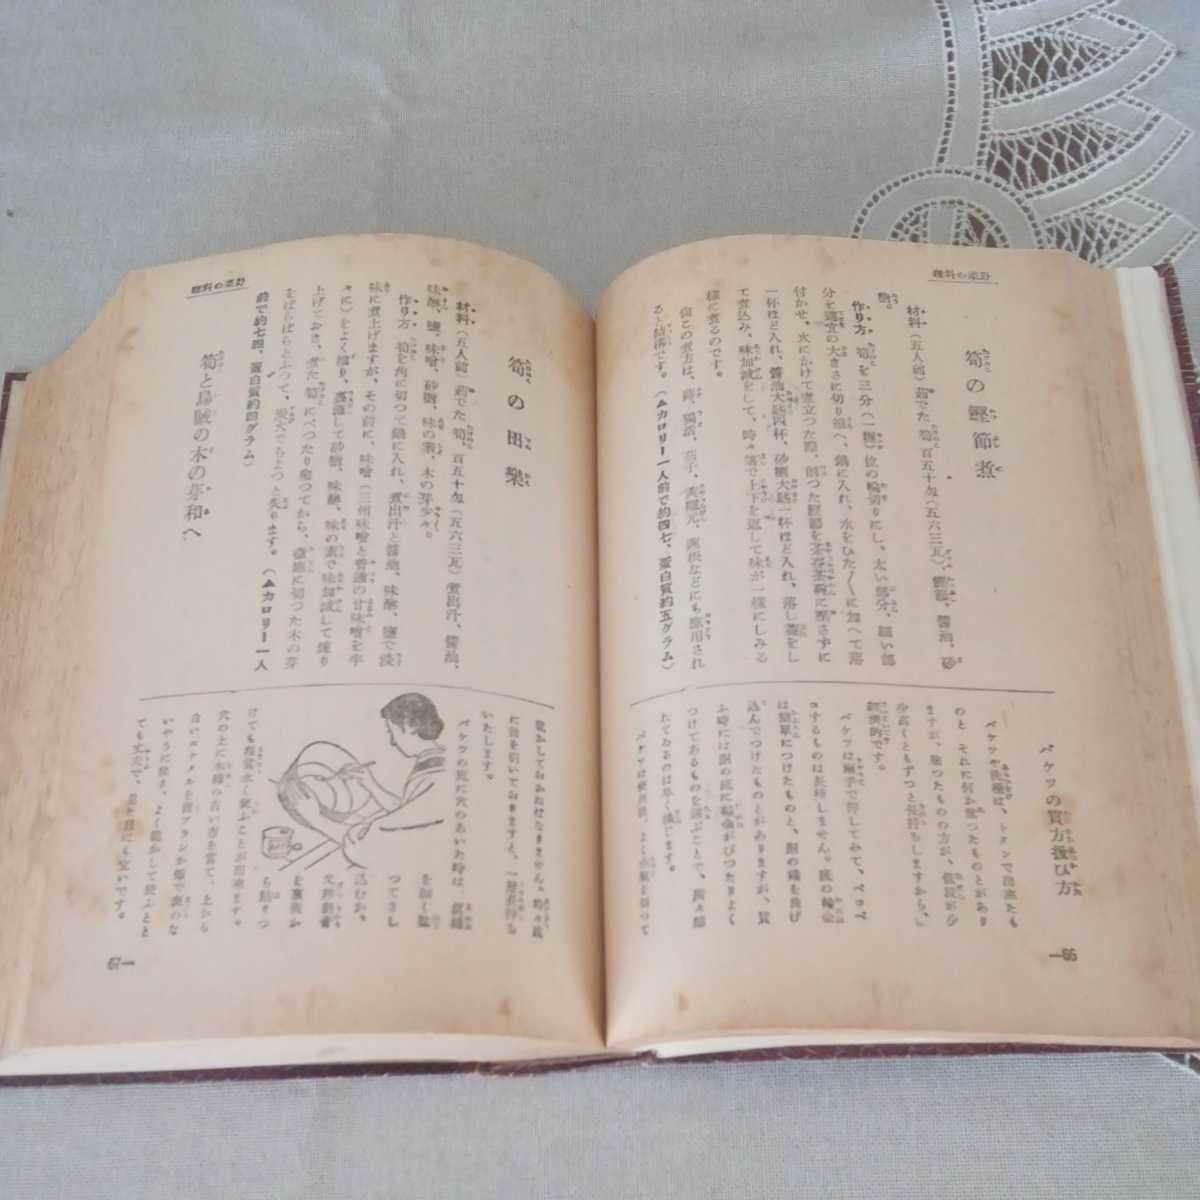 野菜の料理
筍の鰹節煮
材料（五人前）茹でた筍百五十匁（五六三瓦）、鰹節、醬油、砂
糖。
作り方 筍を三分（一糎）位の輪切りにし、太い部分、細い部
分を適宜の大きさに切り揃へ、鍋に入れ、水をひた〳〵に加へて落
付かせ、火にかけて煮立つた際、削つた鰹節を茶呑茶碗に壓さずに
一杯ほど入れ、醬油大匙四杯、砂糖大匙一杯ほど入れ、落し蓋をし
て煮込み、味加減をして、時々箸で上下を返して味が一樣にしみる
樣に煮るのです。
尙この煮方は、蕗、獨活、茄子、莢隱元、大根などにも應用され
ると結構です。（△カロリー一人前で約四七、蛋白質約五グラム）
バケツの買方扱ひ方
バケツや洗桶は、トタンで出來たも
のと それに何か塗つたものとがあり
ますが、塗つたものの方が、値段が少
少高くともずつと長持ちしますから、
經濟的です。
バケツは兩手で押してみて、ペコペ
コするものは長持しません。底の輪金
は簡單につけたものと、胴の端を曲げ
込んでつけたものとがありますが、買
ふ時には胴の底に輪金がぴつたりよく
つけてあるものを選ぶことで、隅々離
れてゐるのは早く損じます。
バケツは使用後、よく水氣を拭つて
—66
野菜の料理
筍の田樂
材料（五人前）茹でた筍百五十匁（五六三瓦）煮出汁、醬油、
味醂、鹽、味噌、砂糖、味の素、木の芽少々。
作り方 筍を角に切つて鍋に入れ、煮出汁と醬油、味醂、鹽で淡
味に煮上げますが、その前に、味噌（三州味噌と普通の甘味噌を半
々に）をよく擂り、裏漉して砂糖、味醂、味の素で味加減して煉り
上げておき、煮た筍にべつたり塗つてから、微塵に切つた木の芽
をぱらぱらとふつて、炭火でちよつと炙ります。（△カロリー一人
前で約七四、蛋白質約四グラム）
筍と烏賊の木の芽和へ
乾かしておかねばなりません。時々底
に油を引いておきますと、一層長持ち
いたします。
バケツの底に穴のあいた時は、
を細く
つてさし
込むか、
又絆創膏
を裏表か
ら貼りつ
けても相當永く使ふことが出來ます。
穴の上に木綿の古い布を當て、上から
白いエナメルを
いやうに塗り、よく乾かして使ふとと
ても丈夫で、見た目にも宜いです。
67—